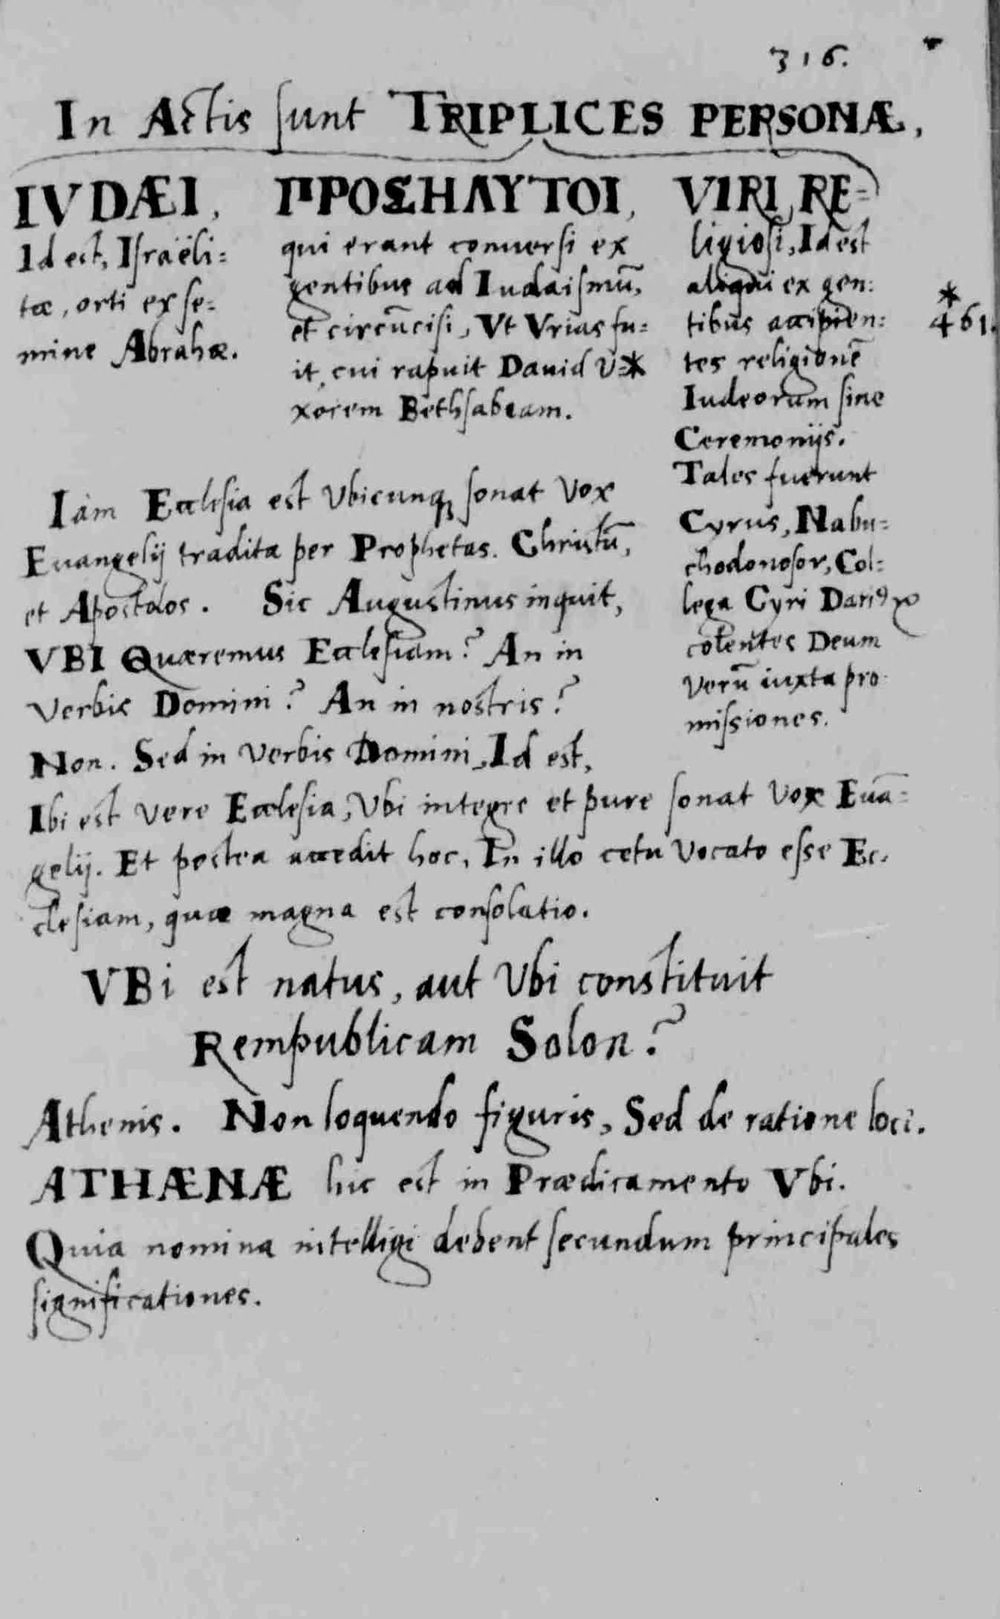 316.
In Actis sunt TRIPLICES PERSONÆ,
IVDÆI,
Id est, Israëli=
tæ, orti ex se=
mine Abrahæ.
ΠΡΟΣΗΛΥΤΟΙ,
qui erant conuersi ex
gentibus ad Iudaismũ,
et circũcisi, Vt Vrias fu=
it, cui rapuit Dauid V=*
xorem Bethsabeam.
VIRI RE=
ligiosi, Id est
aliqui ex gen:
tibus accipien:
tes religionẽ
Iudeorum sine
Ceremonijs.
Tales fuerunt
Cyrus, Nabu=
chodonosor, Col:
lega Cyri Dariꝰ
colentes Deum
verũ iuxta pro
missiones.
*
461.
Iam Ecclesia est Vbicunqꝫ sonat Vox
Euangelij tradita per Prophetas. Christũ,
et Apostolos. Sic Augustinus inquit,
VBI Quæremus Ecclesiam? An in
Verbis Domini? An in nostris?
Non. Sed in Verbis Domini, Id est,
Ibi est vere Ecclesia, Vbi integre et pure sonat Vox Euã=
gelij. Et postea accedit hoc, In illo cetu Vocato esse Ec.
clesiam, quæ magna est consolatio.
VBi est natus, aut Vbi constituit
Rempublicam Solon?
Athenis. Non loquendo figuris, Sed de ratione loci.
ATHÆNÆ hic est in Prædicamento Vbi.
Quia nomina intelligi debent secundum principales
significationes.